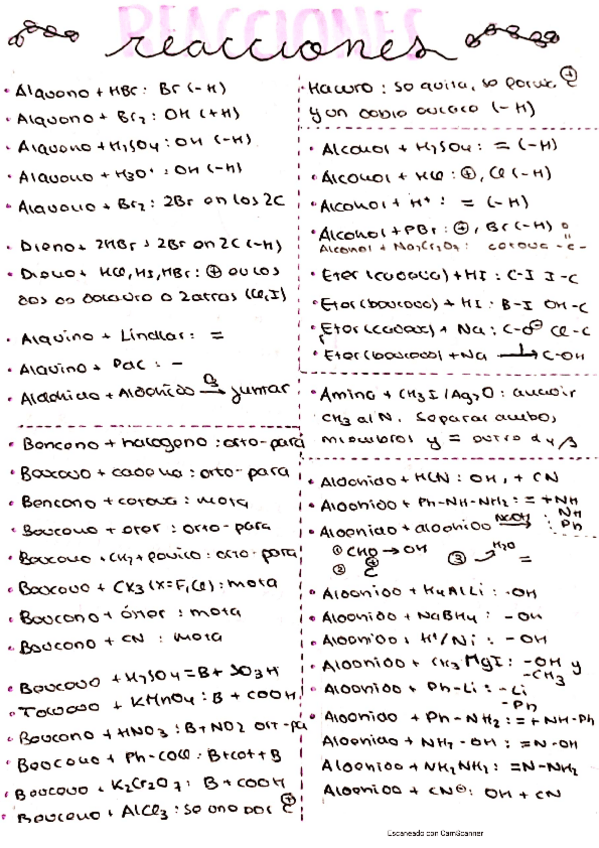 REACCIONES
reacciones
• Alqueno + HBr: Br (-H)
• Alqueno + Br2: OH (+H)
• Alqueno + H2SO4: OH (-H)
• Alqueno + H3O+: OH (-H)
• Alqueno + Br2: 2Br en los 2C
• Dieno + 2HBr: 2Br en 2C (-H)
• Dieno + HCl, HI, HBr: ⊕ en los
dos
(Cl, I)
• Alquino + Lindlar: =
• Alquino + PdC: -
• Aldehído + Aldehído O3→ juntar
• Benceno + halogeno: orto-para
• Benceno + cadena: orto-para
• Benceno + cetona: meta
• Benceno + eter: orto-para
• Benceno + CH2 + : orto-para
• Benceno + CX3 (X=F, Cl): meta
• Benceno + éster: meta
• Benceno + CN: meta
• Benceno + H2SO4 = B + SO3H
• Tolueno + KMnO4: B + COOH
• Benceno + HNO3: B + NO2 ort-pa
• Benceno + Ph-COCl: B + cet + B
• Benceno + K2Cr2O7: B + COOH
• Benceno + AlCl3: se une dos ⊕
• Haluro: se quita, se pone ⊕
y un doble enlace (-H)
• Alcohol + H2SO4: = (-H)
• Alcohol + HCl: ⊕, Cl (-H)
• Alcohol + H+: = (-H)
• Alcohol + PBr: ⊕, Br (-H)
Alcohol + Na2Cr2O7: cetona -C- O
• Eter (cadena) + HI: C-I I-C
• Eter (benceno) + HI: B-I OH-C
• Eter (cadena) + Na: C-O⊖ Cl-C
• Eter (benceno) + Na → C-OH
• Amina + CH3I/Ag2O: añadir
CH3 al N. Separar ambos
miembros y = entre α y β
• Aldehído + HCN: OH, + CN
• Aldehído + Ph-NH-NH2: = + NH
• Aldehído + aldehído NaOH→ : NH Ph
① CHO → OH ③ → H2O
② =
• Aldehído + H4AlLi: -OH
• Aldehído + NaBH4: -OH
• Aldehído + H+/Ni: -OH
• Aldehído + CH3MgI: -OH y
-CH3
• Aldehído + Ph-Li: -Li
-Ph
• Aldehído + Ph-NH2: = + NH-Ph
Aldehído + NH2-OH: =N-OH
Aldehído + NH2NH2: =N-NH2
Aldehído + CN⊖: OH + CN
Escaneado con CamScanner